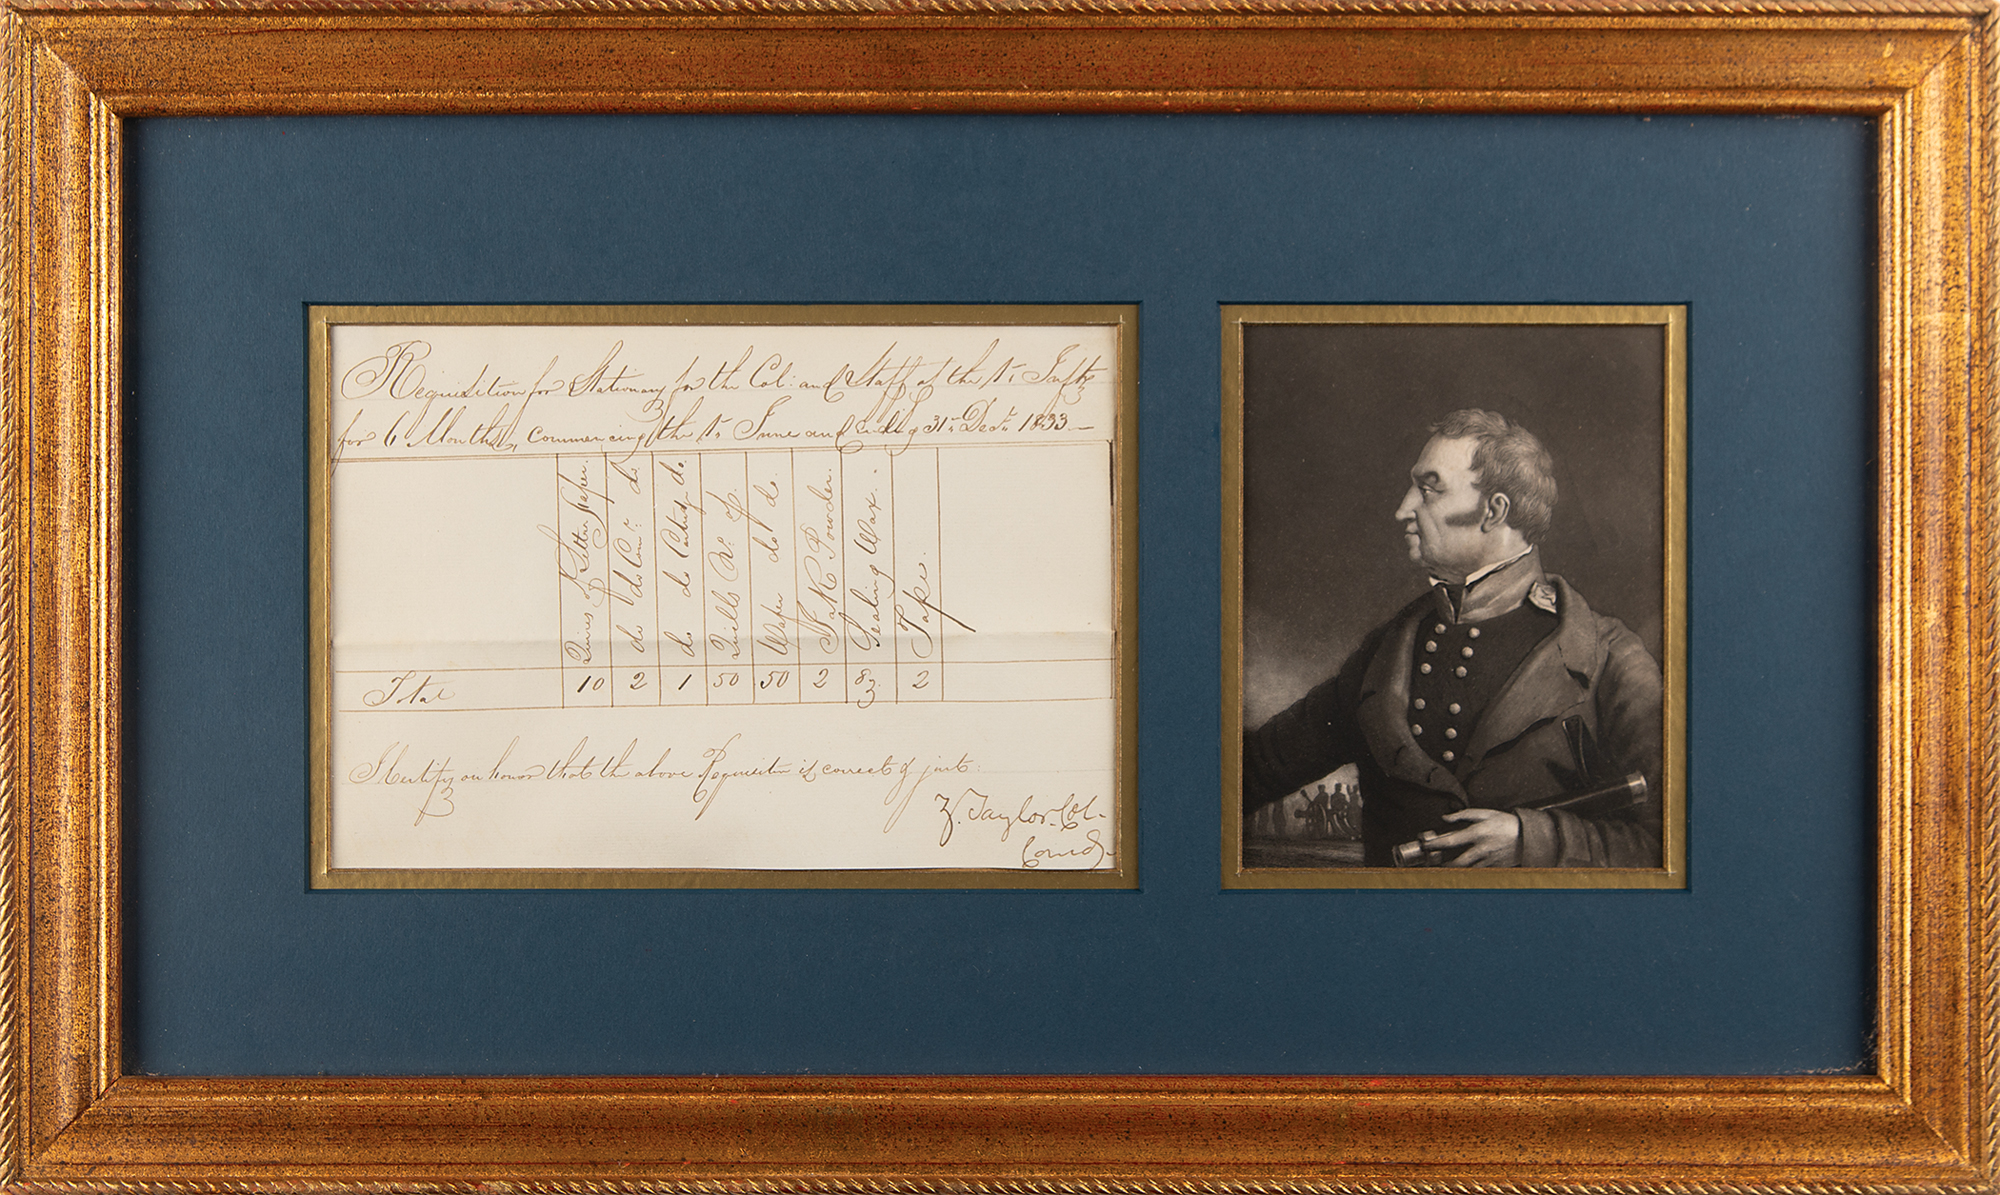 Requisition for Stationary for the Col: and Staff of the 1t. Infty
for 6 Months, commencing the 1t. June and Ending 31t. Decr. 1833—
Quires of Letter paper.
do do do.
do do Cartridge do.
Quills No.
Wafer do do.
Ink Powder.
Sealing Wax.
Tape.
Total 10 2 1 50 50 2 8 2
I certify on honor that the above Requisition is correct & just:
Z. Taylor. Col.
Comdg.